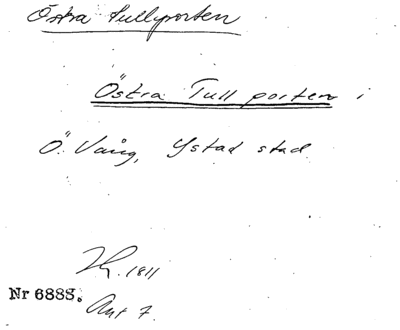 Östra tullporten
Östra Tull porten i
Ö. Vång, Ystad stad
1811
Nr 6888.
Ant 7.